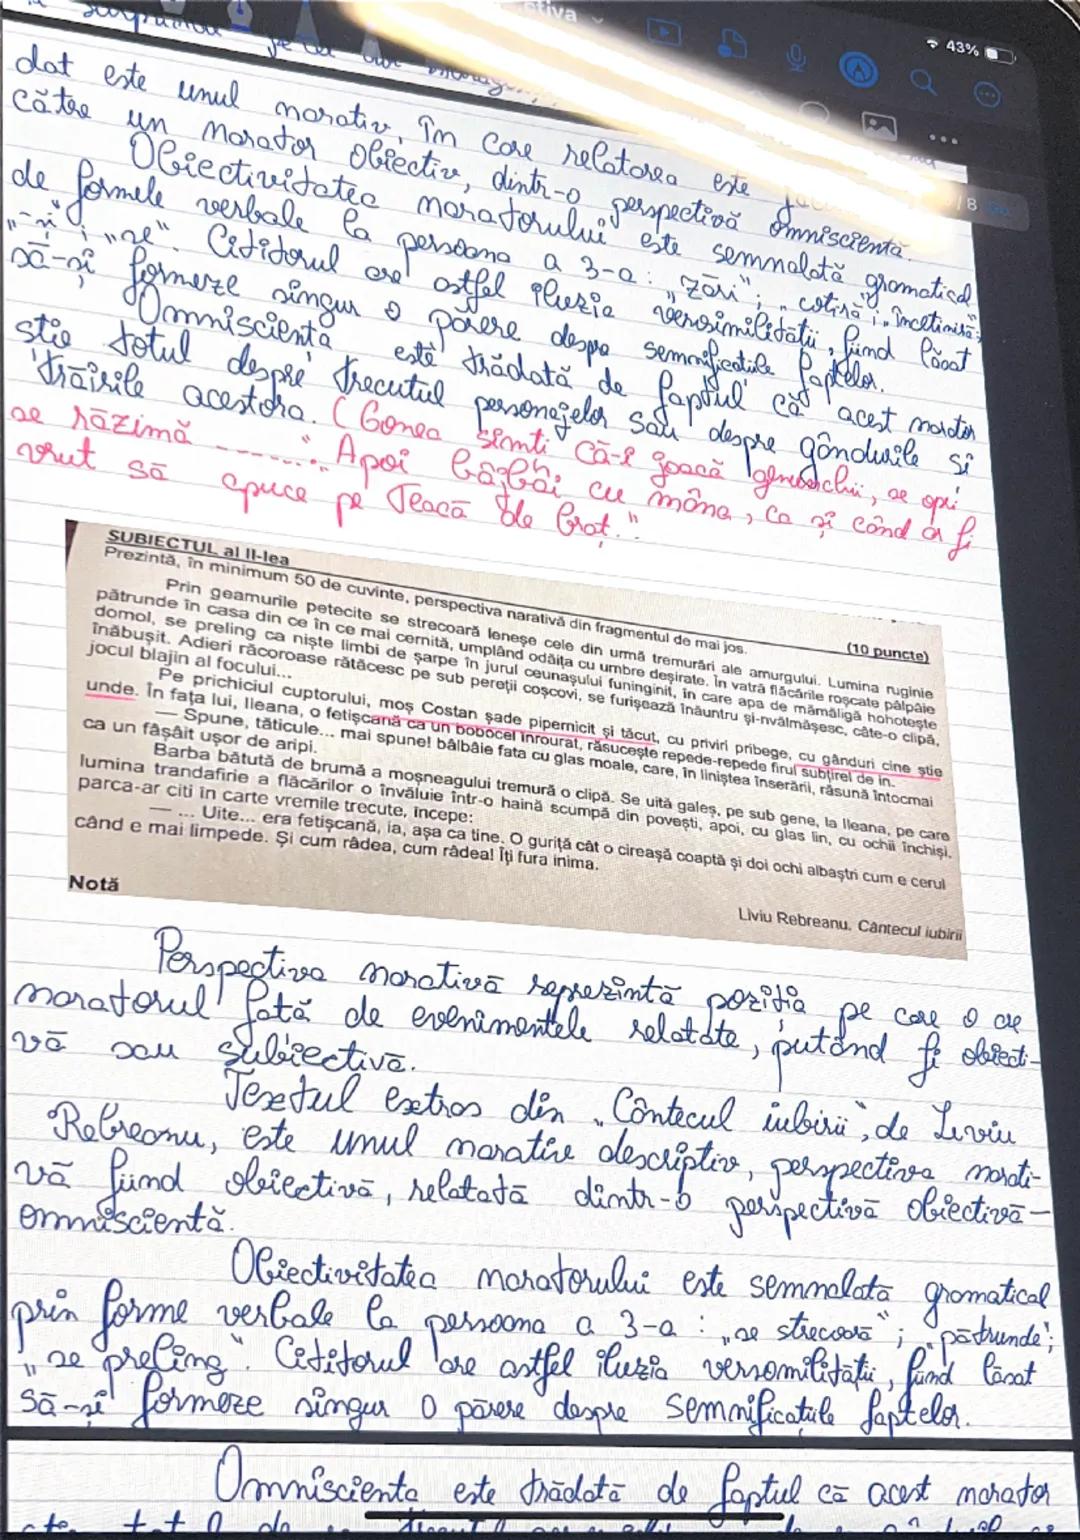 43%
/8
dat este unul narativ, în care relatarea este
către un narator obiectiv, dintr-o perspectivă omniscientă.
Obiectivitatea naratorului este semnalată gramatical
de formele verbale la persoana a 3-a: „zări"; „cotiră"; „încetiniră";
„-și"; „se". Cititorul are astfel iluzia verosimilității, fiind lăsat
să-și formeze singur o părere despre semnificațiile faptelor.
Omnisciența este trădată de faptul că acest narator
știe totul despre trecutul personajelor sau despre gândurile și
trăirile acestora. (Gonea simți că-i joacă genunchii, se opri
se răzimă ........ Apoi bâjbâi cu mâna, ca și când ar fi
vrut să apuce pe Teacă de braț."
SUBIECTUL al II-lea
Prezintă, în minimum 50 de cuvinte, perspectiva narativă din fragmentul de mai jos. (10 puncte)
Prin geamurile petecite se strecoară leneșe cele din urmă tremurări ale amurgului. Lumina ruginie
pătrunde în casa din ce în ce mai cernită, umplând odăița cu umbre deșirate. În vatră flăcările roșcate pâlpâie
domol, se preling ca niște limbi de șarpe în jurul ceunașului funinginit, în care apa de mămăligă hohotește
înăbușit. Adieri răcoroase rătăcesc pe sub pereții coșcovi, se furișează înăuntru și-nvălmășesc, câte-o clipă,
jocul blajin al focului...
Pe prichiciul cuptorului, moș Costan șade pipernicit și tăcut, cu priviri pribege, cu gânduri cine știe
unde. În fața lui, Ileana, o fetișcană ca un bobocel înrourat, răsucește repede-repede firul subțirel de in.
— Spune, tăticule... mai spune! bâlbâie fata cu glas moale, care, în liniștea înserării, răsună întocmai
ca un fâșâit ușor de aripi.
Barba bătută de brumă a moșneagului tremură o clipă. Se uită galeș, pe sub gene, la Ileana, pe care
lumina trandafirie a flăcărilor o învăluie într-o haină scumpă din povești, apoi, cu glas lin, cu ochii închiși,
parca-ar citi în carte vremile trecute, începe:
— ... Uite... era fetișcană, ia, așa ca tine. O guriță cât o cireașă coaptă și doi ochi albaștri cum e cerul
când e mai limpede. Și cum râdea, cum râdea! Îți fura inima.
Liviu Rebreanu, Cântecul iubirii
Notă
Perspectiva narativă reprezintă poziția pe care o are
naratorul față de evenimentele relatate, putând fi obiecti-
vă sau subiectivă.
Textul extras din „Cântecul iubirii", de Liviu
Rebreanu, este unul narativ descriptiv, perspectiva narati-
vă fiind obiectivă, relatată dintr-o perspectivă obiectivă-
omniscientă.
Obiectivitatea naratorului este semnalată gramatical
prin forme verbale la persoana a 3-a: „se strecoară"; „pătrunde";
„se preling". Cititorul are astfel iluzia versomilității, fiind lăsat
să-și formeze singur o părere despre semnificațiile faptelor.
Omnisciența este trădată de faptul că acest narator